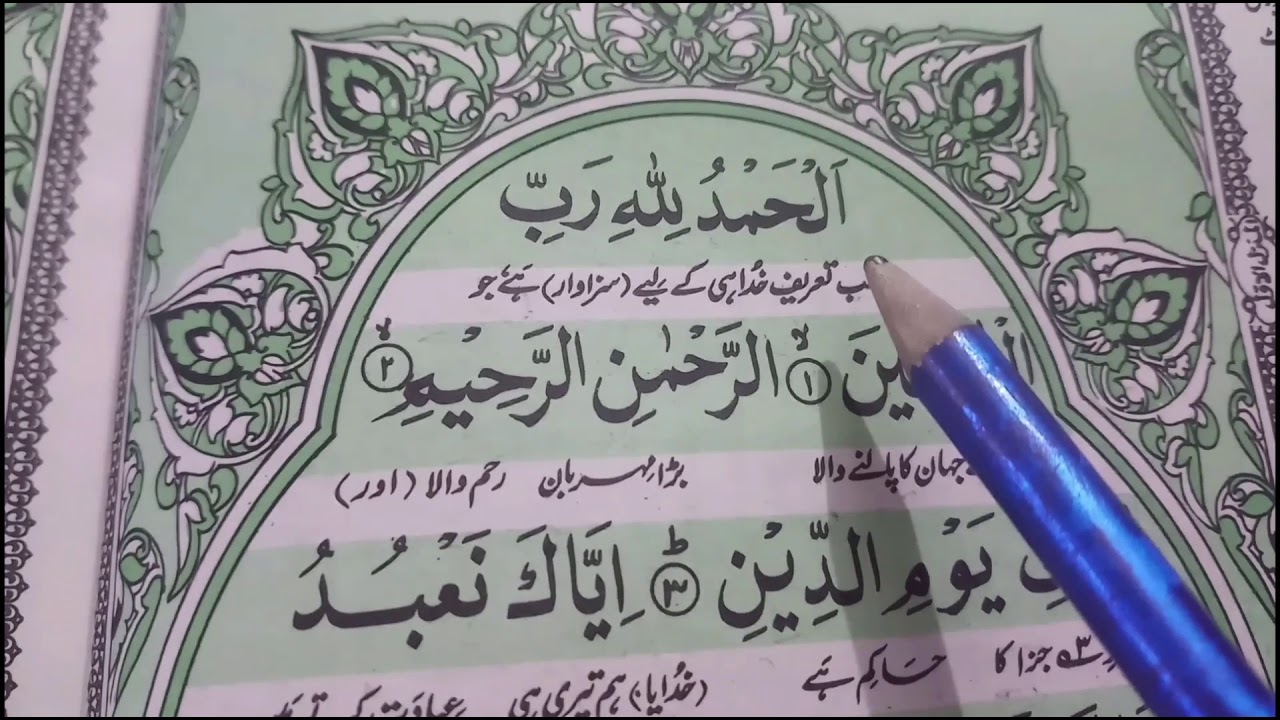 اَلْحَمْدُ لِلّٰهِ رَبِّ
تعریف خُدا ہی کے لیے (سزاوار) ہَے جو
الرَّحْمٰنِ الرَّحِیْمِ ۙ۲
جہان کا پالنے والا بڑا مہربان رحم والا (اور)
یَوْمِ الدِّیْنِ ؕ۳ اِیَّاكَ نَعْبُدُ
جزا کا حاکم ہَے (خُدایا) ہم تیری ہی
المنزل الاول